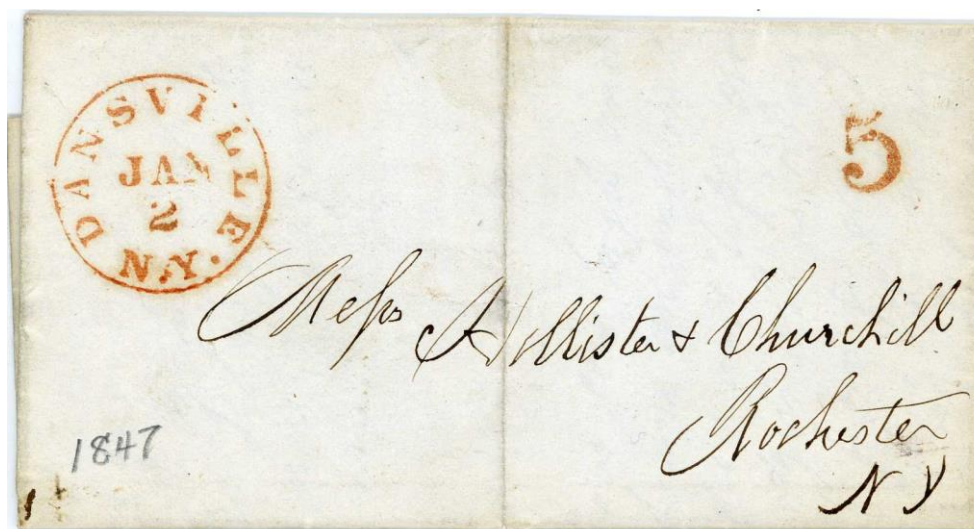 DANSVILLE
JAN
2
N.Y.
5
Messrs Hollister & Churchill
Rochester
N Y
1847